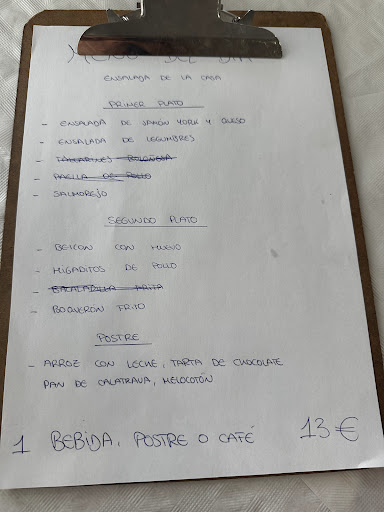 MENÚ DEL DIA
ENSALADA DE LA CASA
PRIMER PLATO
- ENSALADA DE JAMÓN YORK Y QUESO
- ENSALADA DE LEGUMBRES
- TALLARINES BOLOÑESA
- PAELLA DE POLLO
- SALMOREJO
SEGUNDO PLATO
- BEICON CON HUEVO
- HIGADITOS DE POLLO
- BACALADILLA FRITA
- BOQUERON FRITO
POSTRE
- ARROZ CON LECHE, TARTA DE CHOCOLATE
PAN DE CALATRAVA, MELOCOTÓN
1 BEBIDA, POSTRE O CAFÉ 13 €